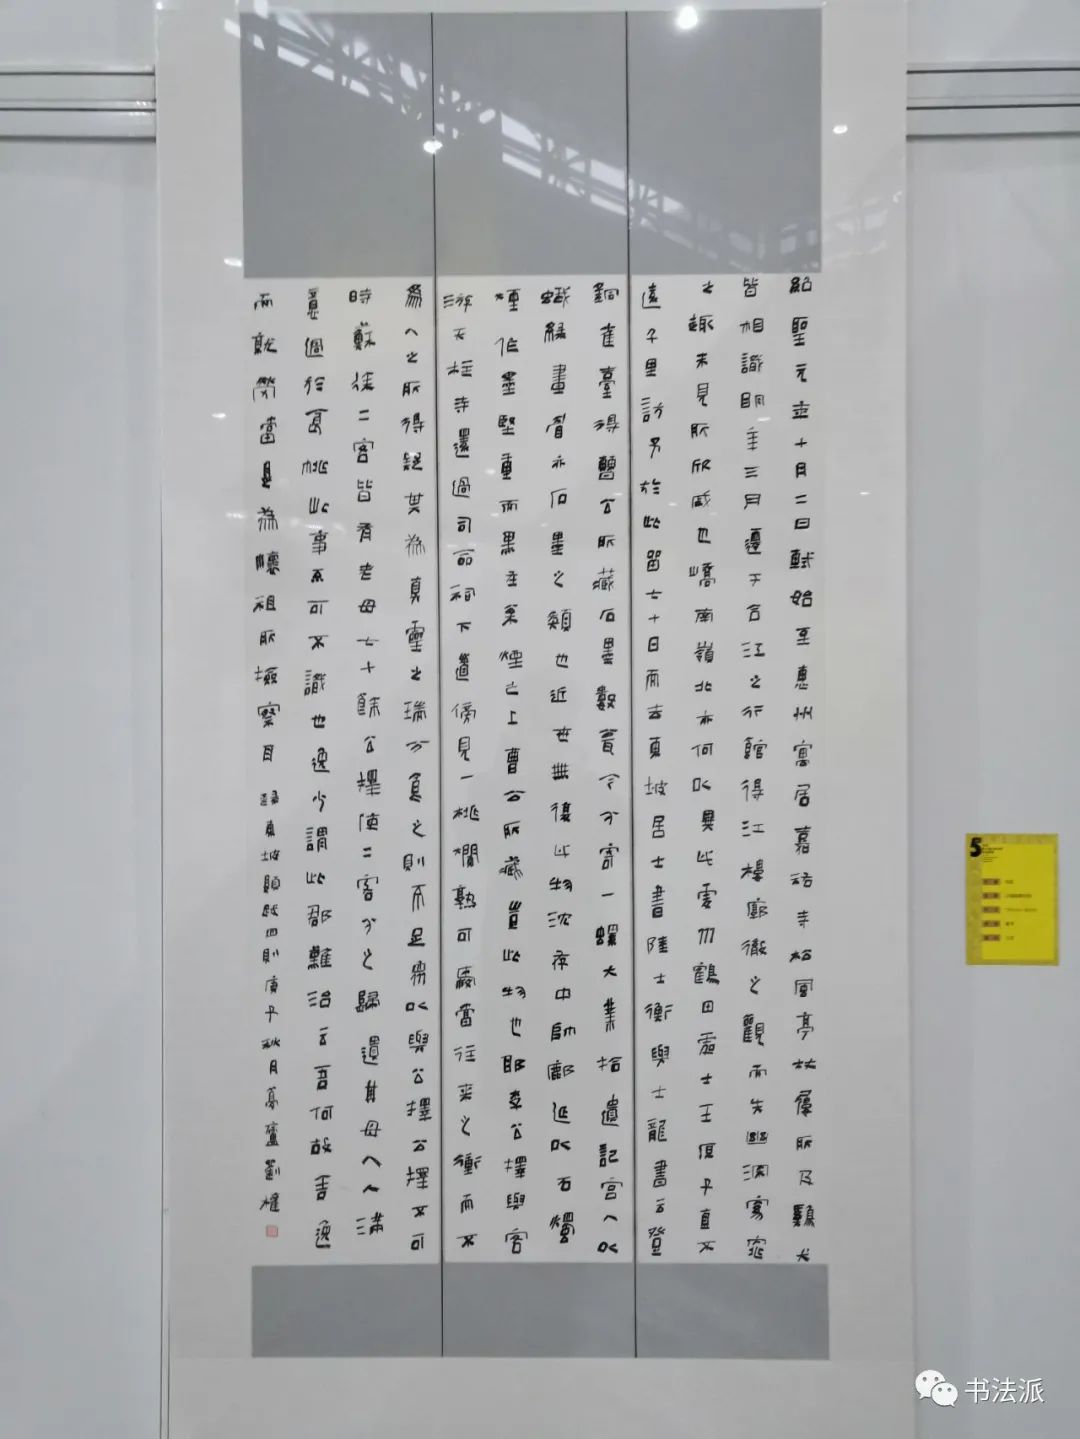 紹聖元年十月二日軾始至惠州寓居嘉祐寺松風亭杖履所及雞犬
皆相識明年三月遷于合江之行館得江樓廓徹之觀而失幽深窈窕
之趣未見所欣戚也嶠南嶺北亦何以異此虔州鶴田處士王原子直不
遠千里訪予於此留七十日而去東坡居士書陸士衡與士龍書云登
銅雀臺得曹公所藏石墨數甕今分寄一螺大業拾遺記宮人以
蛾綠畫眉亦石墨之類也近世無復此物沈存中帥鄜延以石燭
煙作墨堅重而黑在松煙之上曹公所藏豈此物也耶李公擇與客
游天柱寺還過司命祠下道傍見一桃爛熟可愛當往來之衝而不
為人之所得疑其為真靈之瑞分食之則不足眾以與公擇公擇不可
時蘇徐二客皆有老母七十餘公擇使二客分之歸遺其母人人滿
意過於食桃此事不可不識也逸少謂此郡難治云吾何故舍逸
而就勞當是為懷祖所檢察耳
錄東坡題跋四則庚子秋月
劉
書法派
5